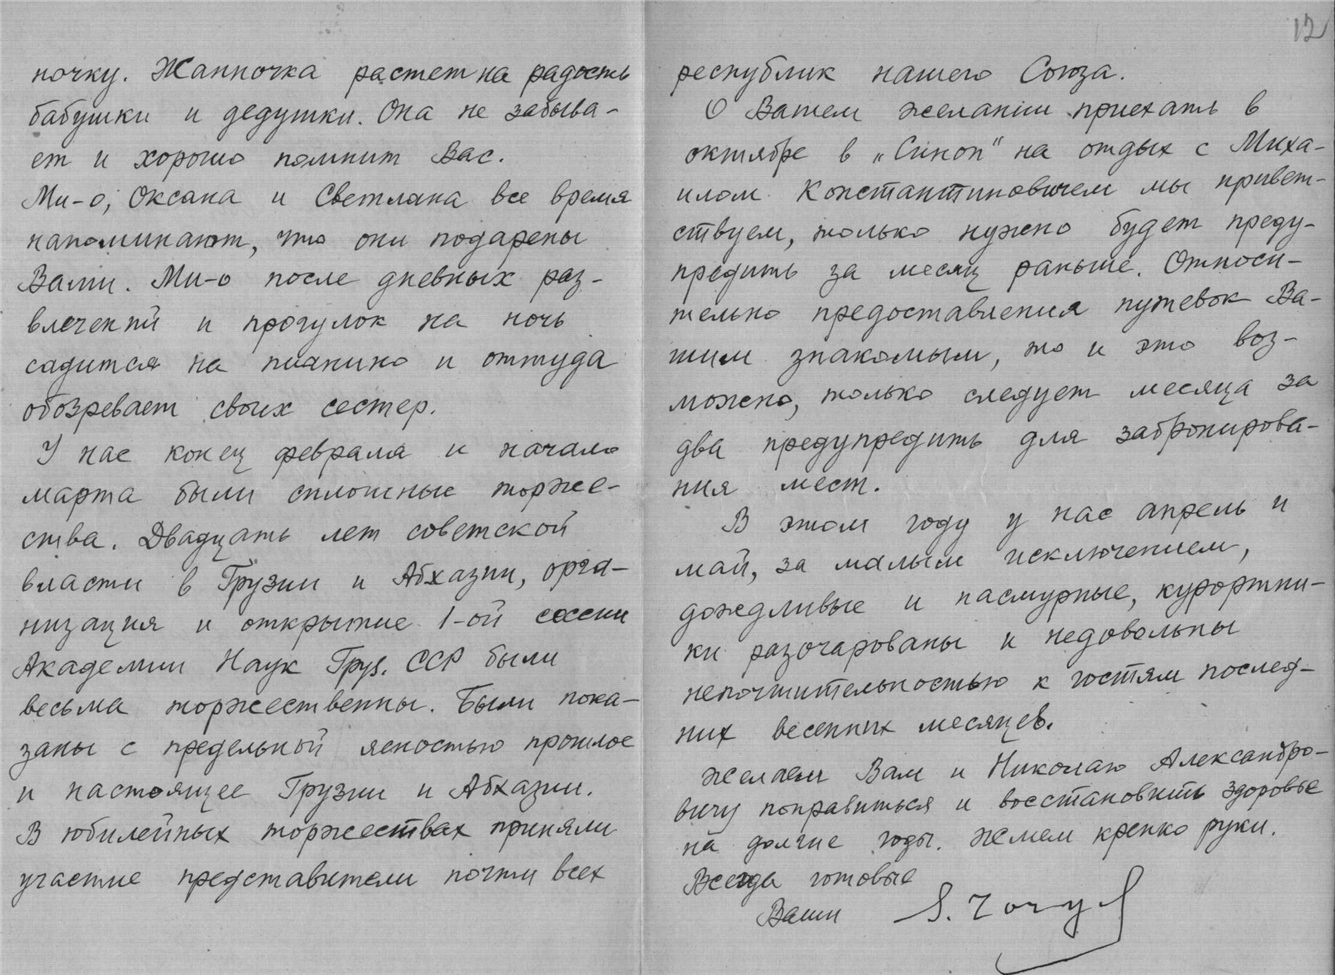 ночку. Жанночка растет на радость
бабушки и дедушки. Она не забыва-
ет и хорошо помнит Вас.
Ми-о, Оксана и Светлана все время
напоминают, что они подарены
Вами. Ми-о после дневных раз-
влечений и прогулок на ночь
садится на пианино и оттуда
обозревает своих сестер.
У нас конец февраля и начало
марта были сплошные торже-
ства. Двадцать лет советской
власти в Грузии и Абхазии, орга-
низация и открытие 1-ой сессии
Академии Наук Груз. ССР были
весьма торжественны. Были пока-
заны с предельной ясностью прошлое
и настоящее Грузии и Абхазии.
В юбилейных торжествах приняли
участие представители почти всех
12
республик нашего Союза.
О Вашем желании приехать в
октябре в „Синоп" на отдых с Миха-
илом Константиновичем мы привет-
ствуем, только нужно будет преду-
предить за месяц раньше. Относи-
тельно предоставления путевок Ва-
шим знакомым, то и это воз-
можно, только следует месяца за
два предупредить для забронирова-
ния мест.
В этом году у нас апрель и
май, за малым исключением,
дождливые и пасмурные, курортни-
ки разочарованы и недовольны
непочтительностью к гостям послед-
них весенних месяцев.
Желаем Вам и Николаю Александро-
вичу поправиться и восстановить здоровье
на долгие годы. Жмем крепко руки.
Всегда готовые
Ваши